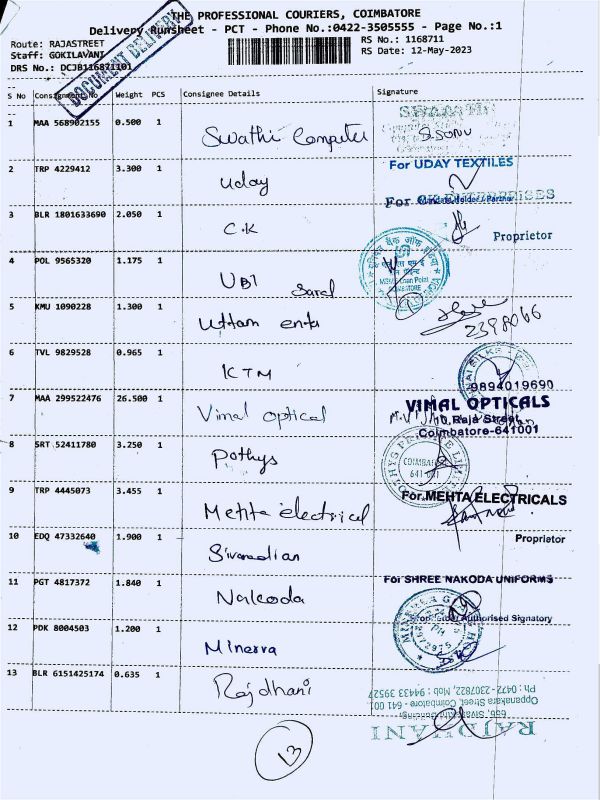 THE PROFESSIONAL COURIERS, COIMBATORE
Delivery Runsheet - PCT - Phone No.:0422-3505555 - Page No.:1
Route: RAJASTREET
RS No.: 1168711
Staff: GOKILAVANI
RS Date: 12-May-2023
DRS No.: DCJB116871101
DOCUMENT DELIVERY
S No Consignment No Weight PCS Consignee Details Signature
1 MAA 568902155 0.500 1 Swathi Computer
S.SONU
2 TRP 4229412 3.300 1 Uday
For UDAY TEXTILES
3 BLR 1801633690 2.050 1 C.K
For CK ENTERPRISES
Proprietor
4 POL 9565320 1.175 1 UBI
COIMBATORE
5 KMU 1090228 1.300 1 Uttam ents
2398066
6 TVL 9829528 0.965 1 KTM
9894019690
7 MAA 299522476 26.500 1 Vimal optical
VIMAL OPTICALS
Raja Street
Coimbatore-641001
8 SRT 52411780 3.250 1 Pothys
COIMBATORE
641 001
9 TRP 4445073 3.455 1 Mehta electrical
For MEHTA ELECTRICALS
Proprietor
10 EDQ 47332640 1.900 1
11 PGT 4817372 1.840 1 Nakoda
For SHREE NAKODA UNIFORMS
Authorised Signatory
12 PDK 8004503 1.200 1 Minerva
13 BLR 6151425174 0.635 1 Rajdhani
RAJDHANI
Oppanakara Street, Coimbatore - 641 001
Ph : 0422 - 2307822, Mob : 94433 39527
13